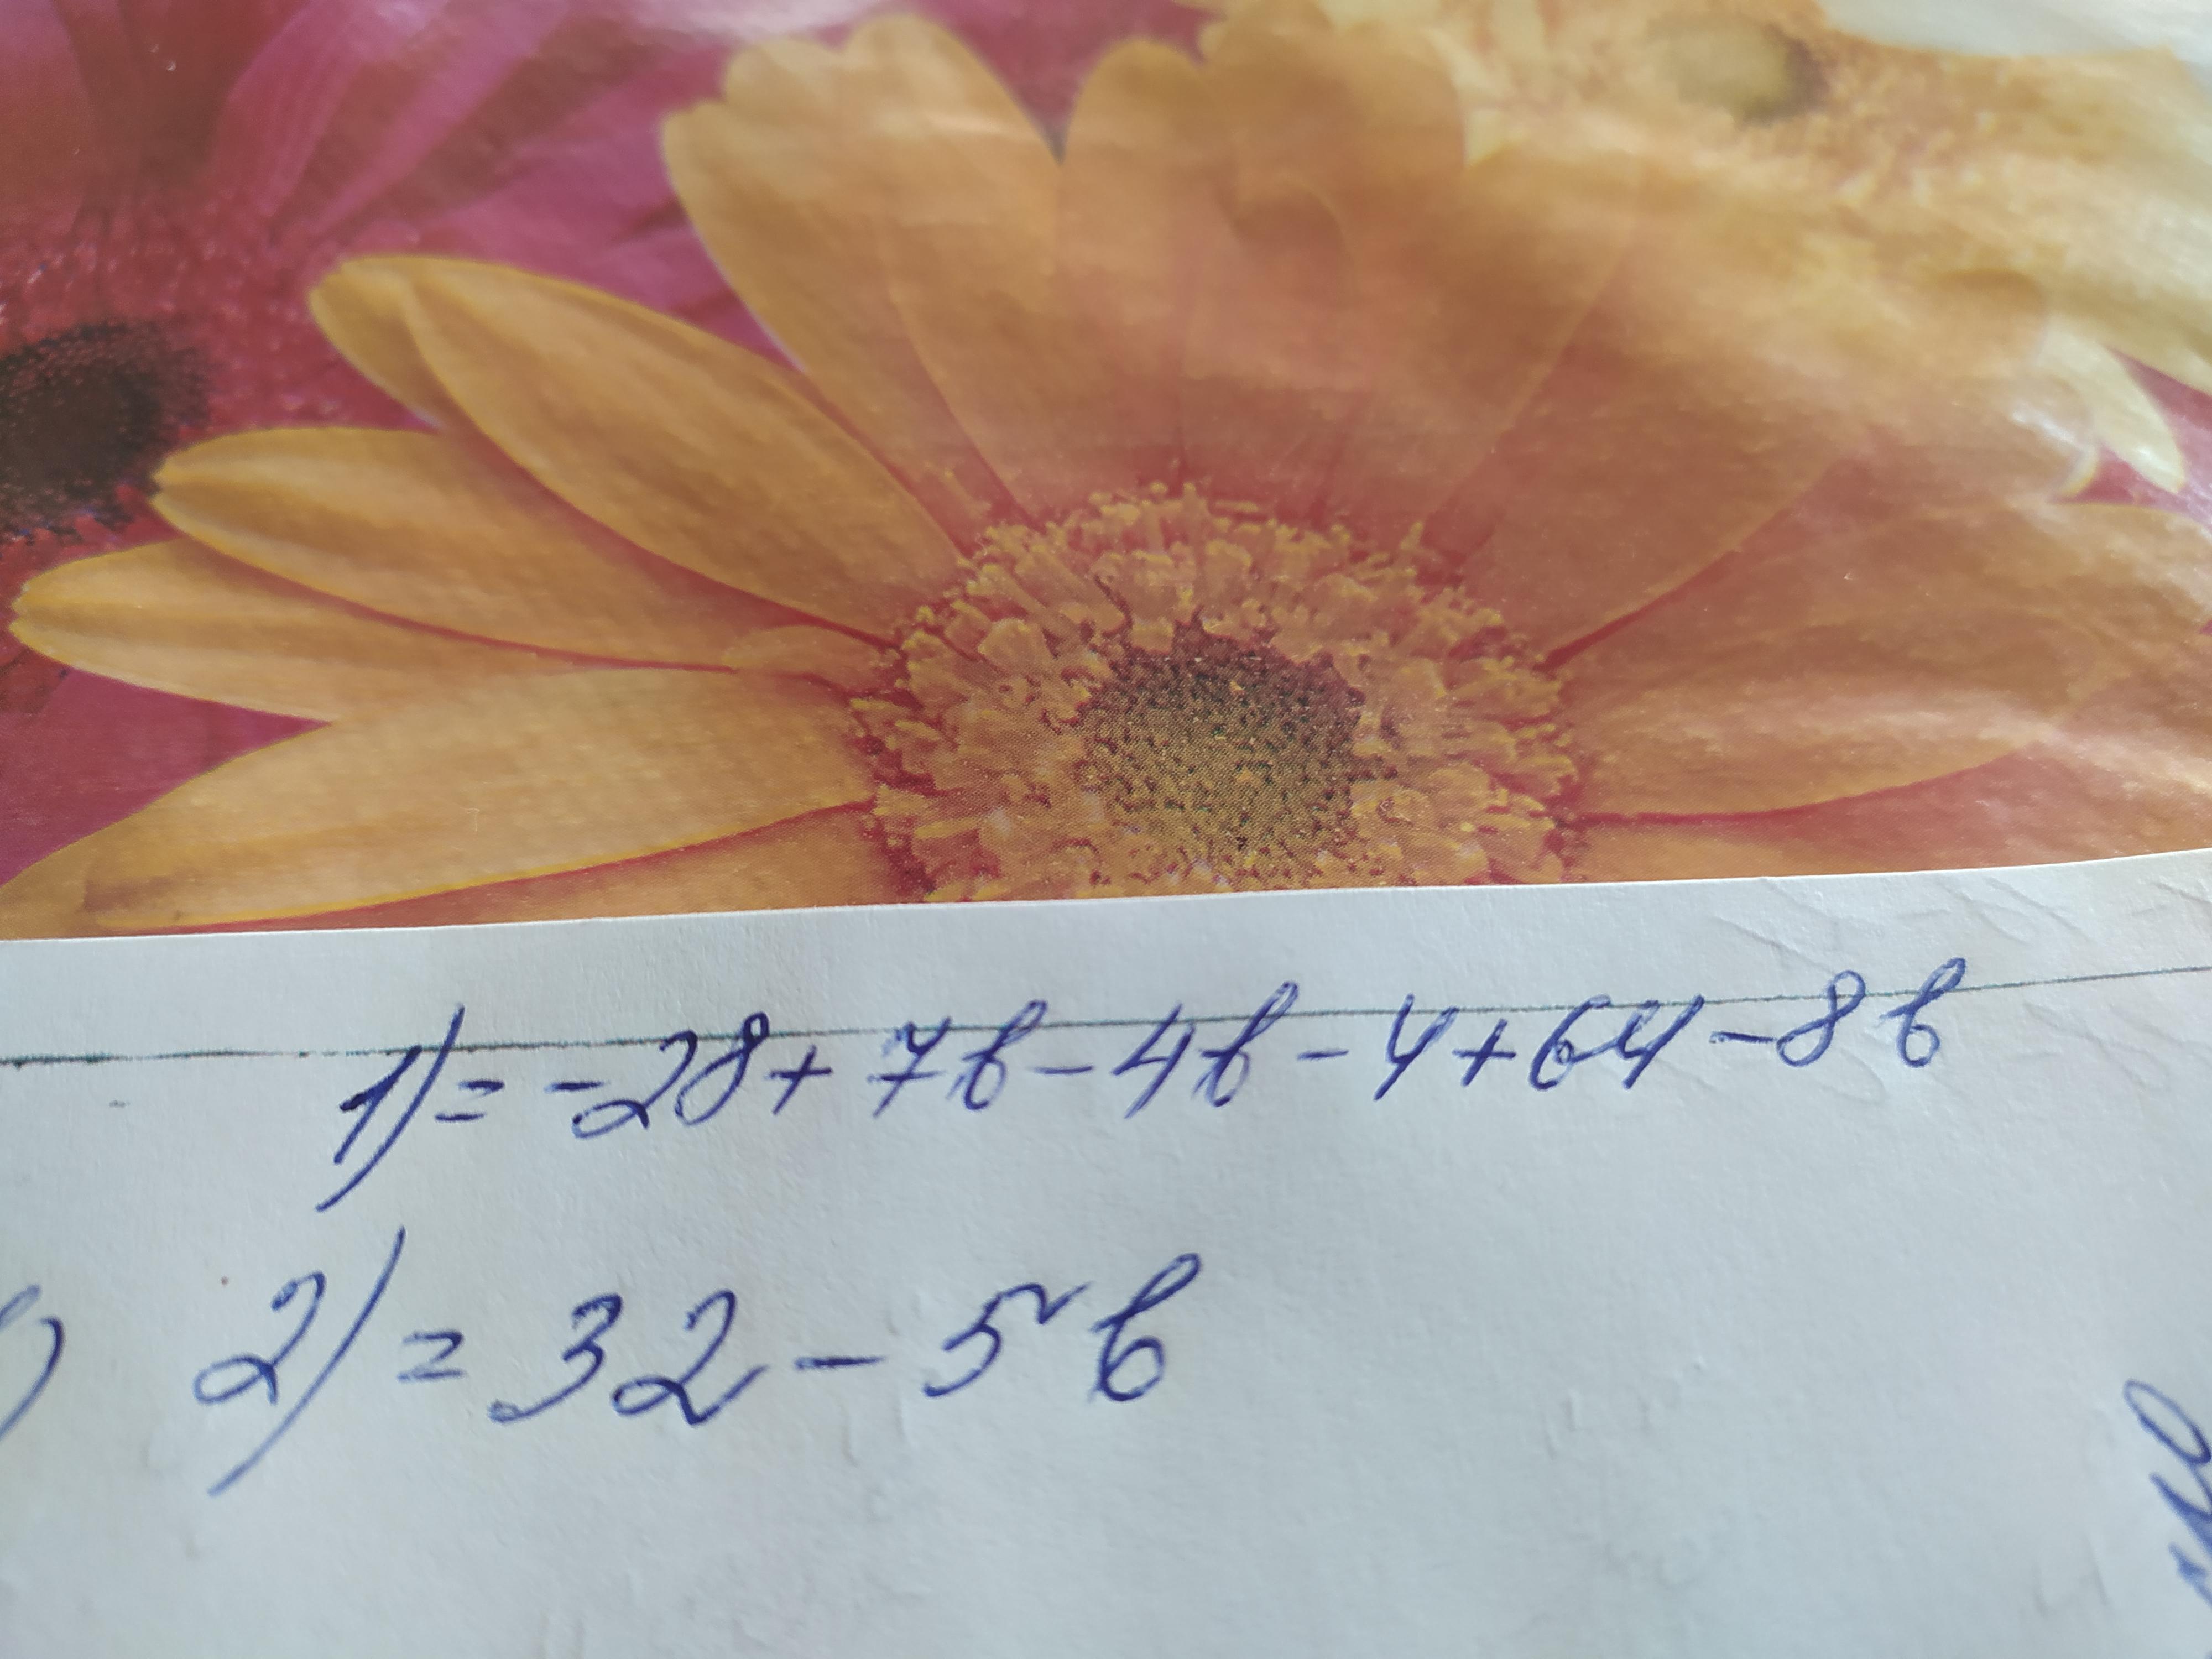 1) = -28 + 7b - 4b - 4 + 64 - 8b
2) = 32 - 5b